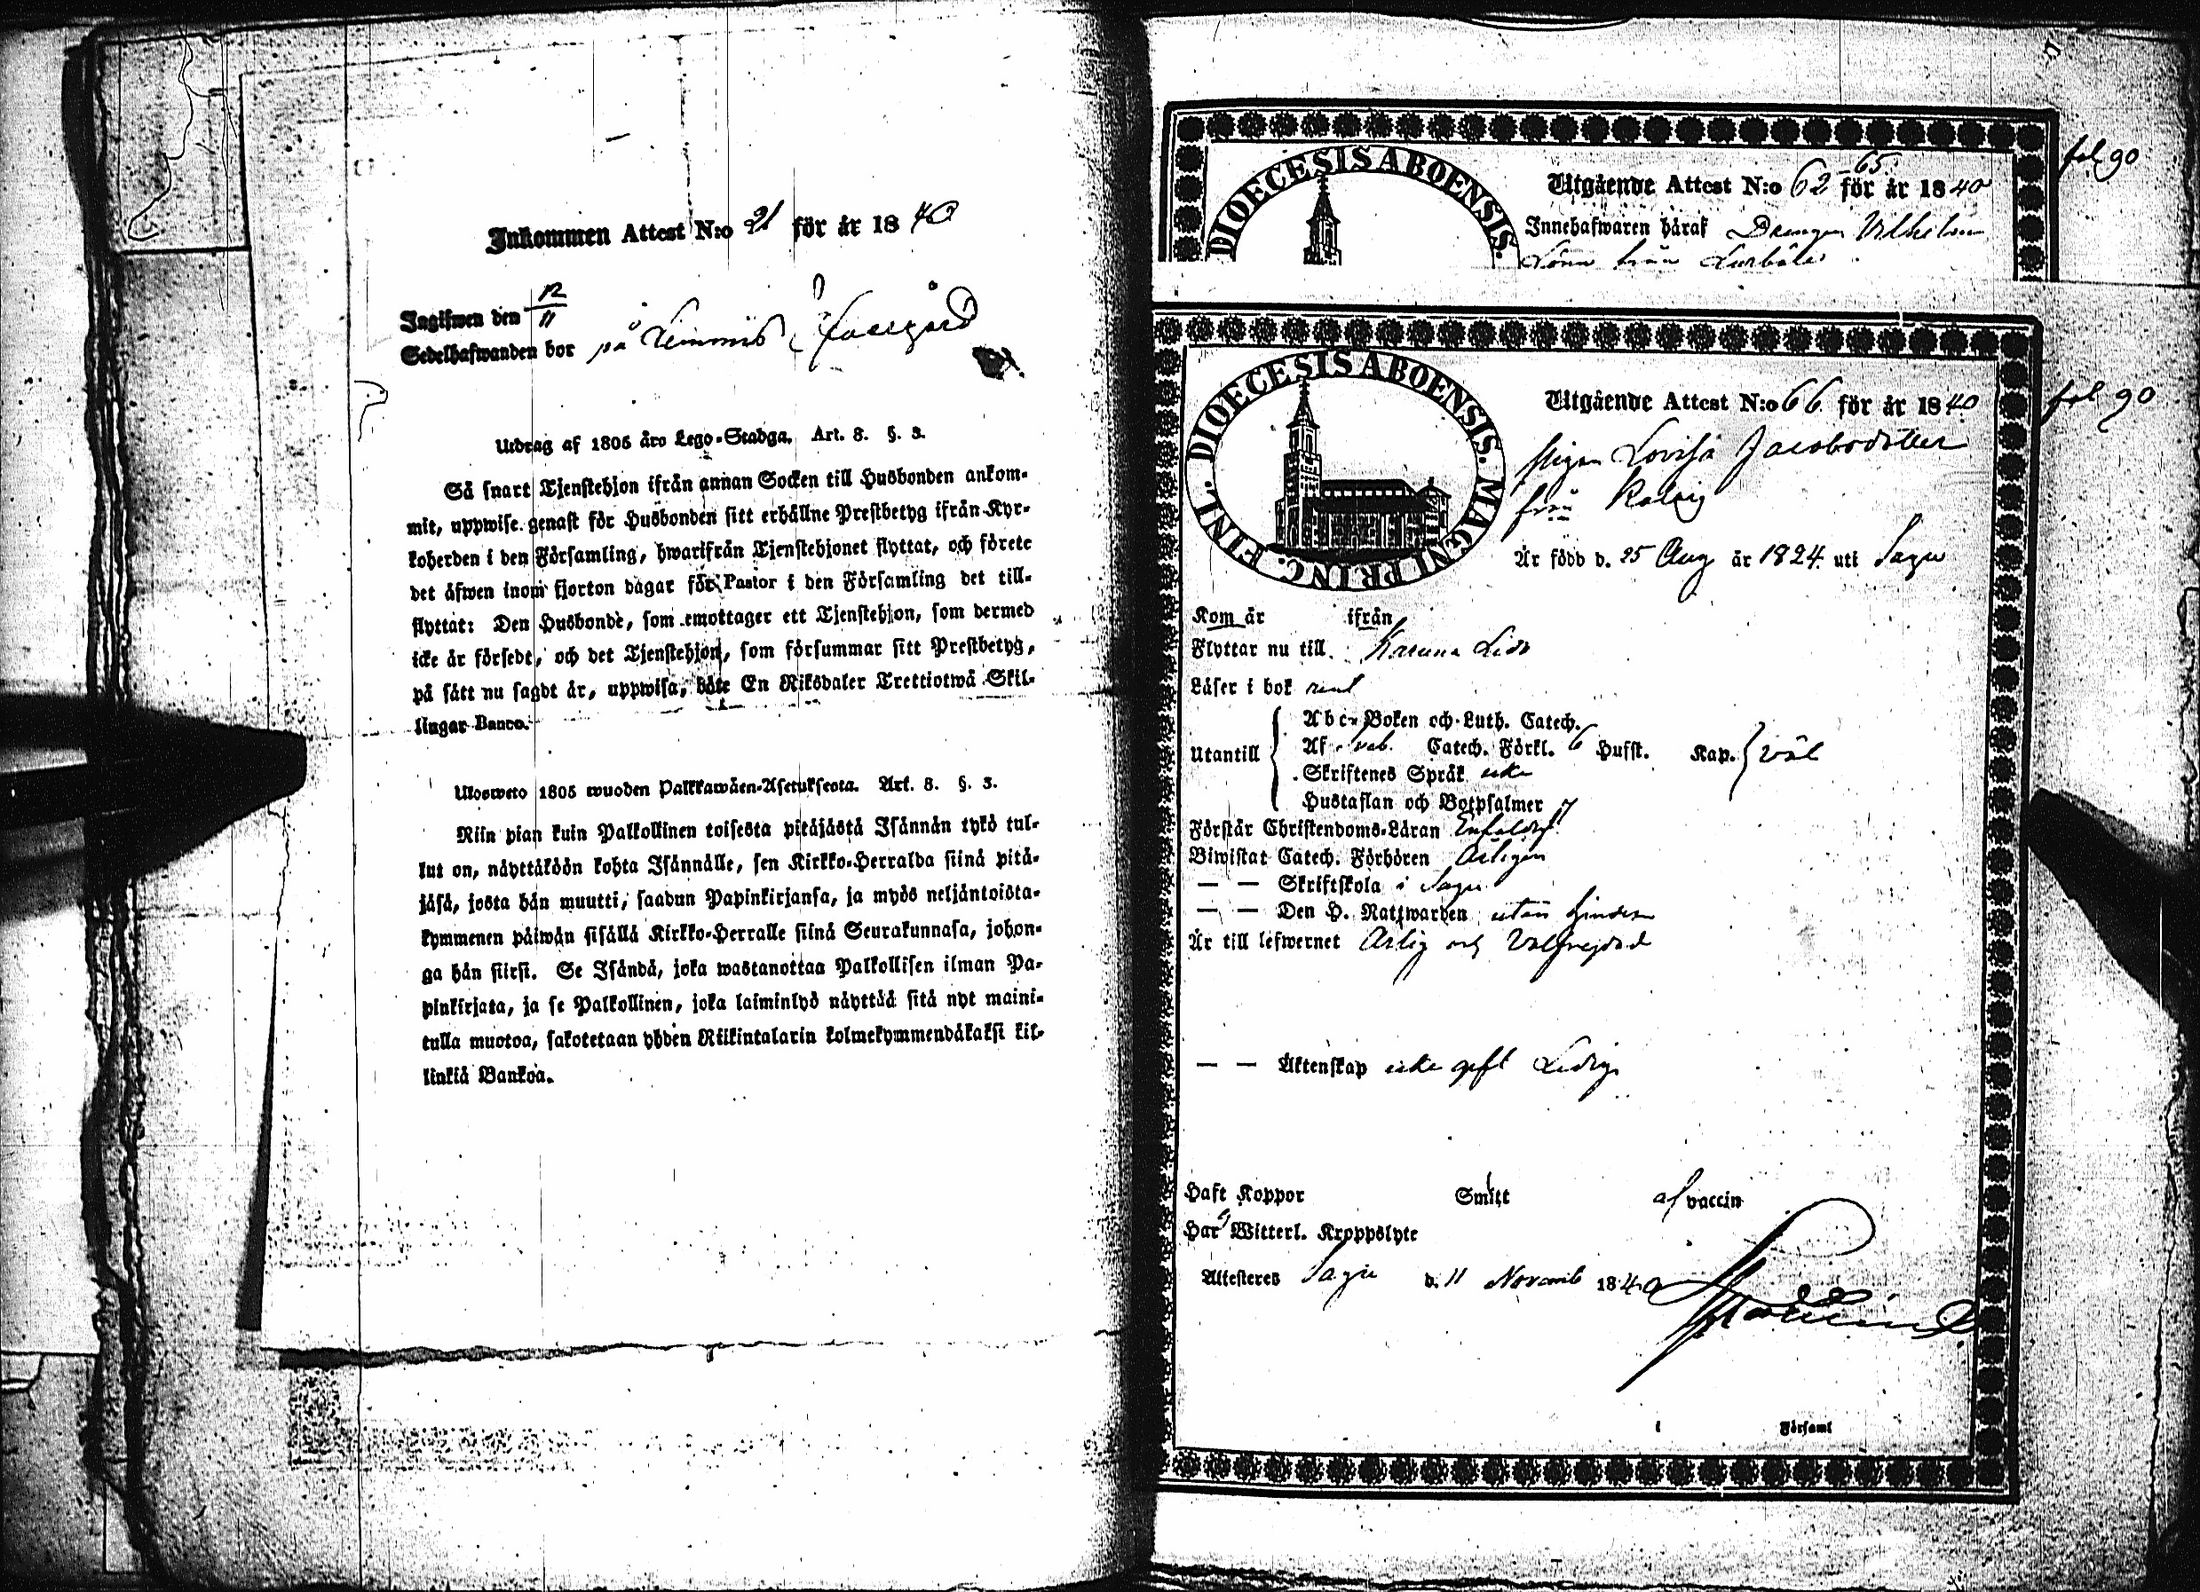 Inkommen Attest N:o 21 för år 1840
Ingifwen den 12/11
Sedelhafwanden bor på
Utdrag af 1805 års Lego-Stadga. Art. 8. §. 3.
Så snart Tjenstehjon ifrån annan Socken till Husbonden ankom-
mit, uppwise genast för Husbonden sitt erhållne Prestbetyg ifrån Kyr-
koherden i den Församling, hwarifrån Tjenstehjonet flyttat, och förete
det äfwen inom fjorton dagar för Pastor i den Församling det till-
flyttat: Den Husbonde, som emottager ett Tjenstehjon, som dermed
icke är försedt, och det Tjenstehjon, som försummar sitt Prestbetyg,
på sätt nu sagdt är, uppwisa, böte En Riksdaler Trettiotwå Skil-
lingar Banco.
Ulosweto 1805 wuoden Palkkawäen-Asetuksesta. Art. 8. §. 3.
Niin pian kuin Palkollinen toisesta pitäjästä Isännän tykö tul-
lut on, näyttäköön kohta Isännälle, sen Kirkko-Herralda siinä pitä-
jäsä, josta hän muutti, saadun Papinkirjansa, ja myös neljäntoista-
kymmenen päiwän sisällä Kirkko-Herralle siinä Seurakunnasa, johon-
ga hän siirsi. Se Isändä, joka wastanottaa Palkollisen ilman Pa-
pinkirjata, ja se Palkollinen, joka laiminlyö näyttää sitä nyt maini-
tulla muotoa, sakotetaan yhden Riikintalarin kolmekymmendäkaksi kil-
linkiä Bankoa.
DIOECESIS ABOENSIS.
Utgående Attest N:o 62-65 för år 1840
fol 90
Innehafwaren häraf Drengen Vilhelm
från
DIOECESIS ABOENSIS. MAGNI PRINC. FINL.
Utgående Attest N:o 66 för år 1840
fol 90
Pigan Lovisa Jacobsdotter
från
Är född d. 25 Aug år 1824 uti Sagu
Kom år ifrån
Flyttar nu till Karuna
Läser i bok rent
Utantill
Abc-Boken och Luth. Catech.
Af Catech. Förkl. 6 Hufst. Kap. väl
Skriftenes Språk icke
Hustaflan och Botpsalmer
Förstår Christendoms-Läran Enfaldigt
Biwistat Catech. Förhören Årligen
— — Skriftskola i Sagu
— — Den H. Nattwarden utan hinder
Är till lefwernet Ärlig och Välfrejdad
— — Äktenskap icke gift Ledig
Haft Koppor Smitt af vaccin
Har ej Witterl. Kroppslyte
Attesteres Sagu d. 11 Novemb 1840
i Församl